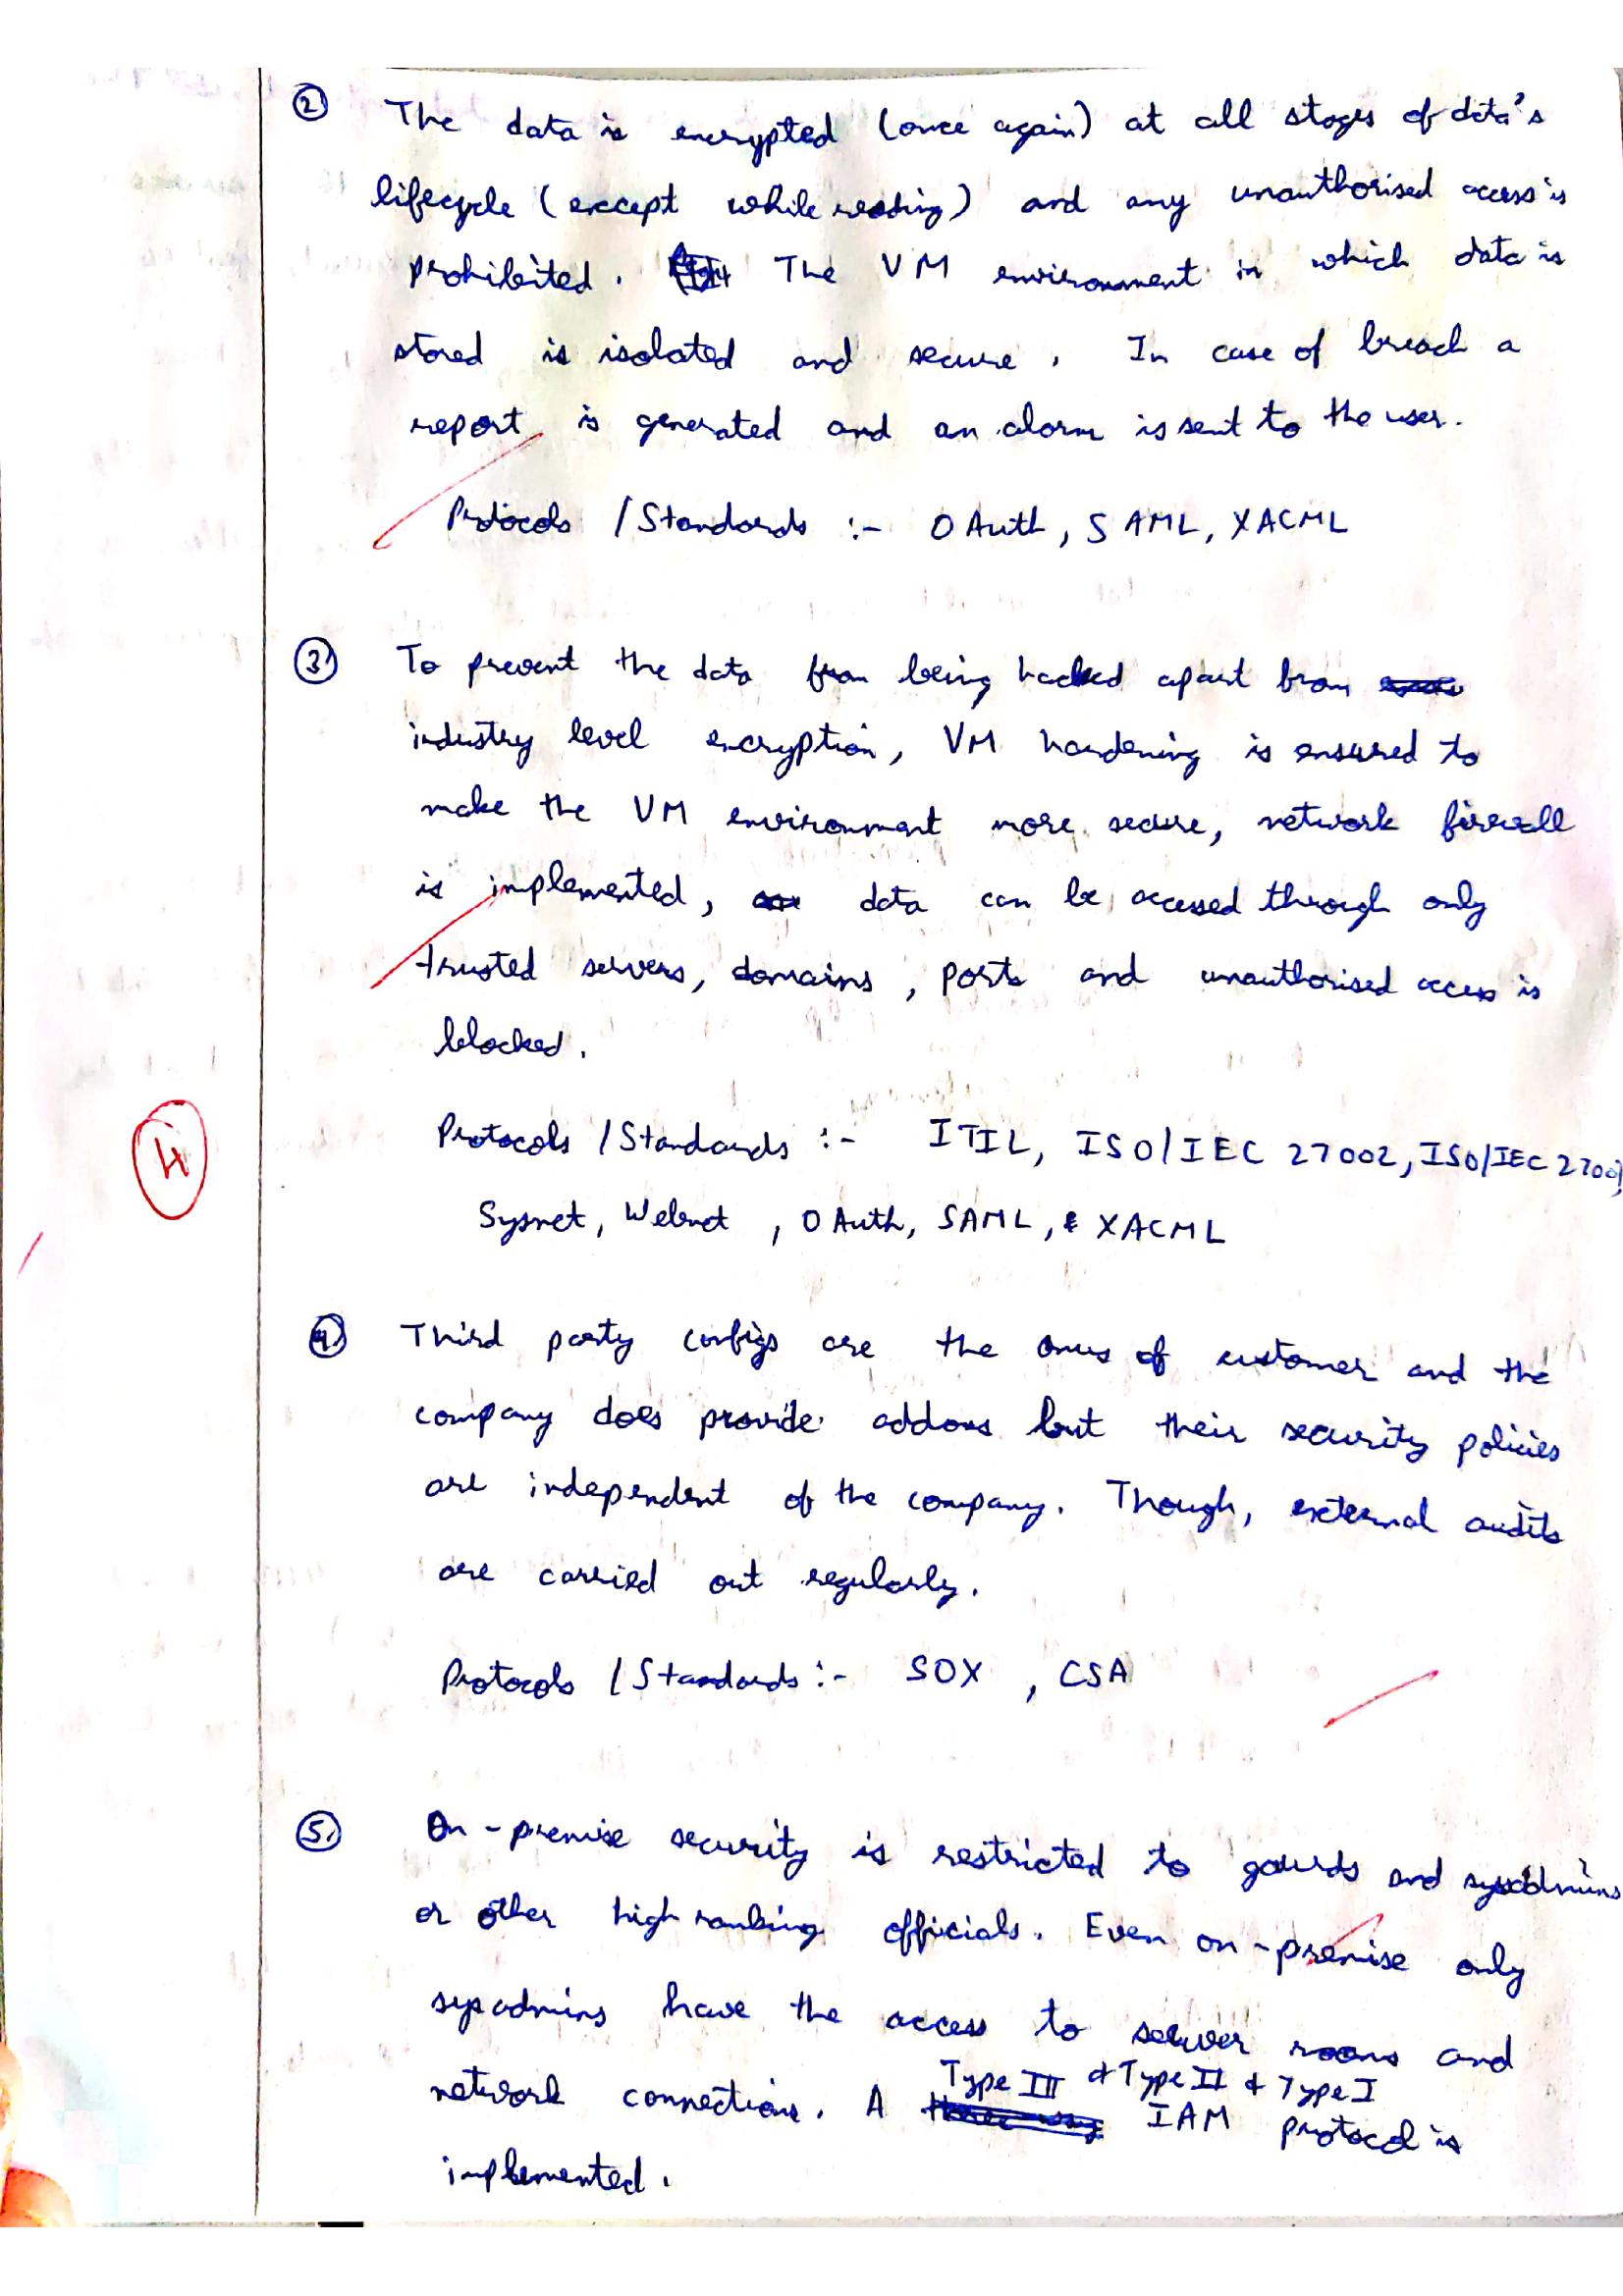 ② The data is encrypted (once again) at all stages of data's
lifecycle (except while reading) and any unauthorised access is
prohibited. The VM environment in which data is
stored is isolated and secure. In case of breach a
report is generated and an alarm is sent to the user.
Protocols / Standards :- OAuth, SAML, XACML
③ To prevent the data from being hacked apart from
industry level encryption, VM hardening is ensured to
make the VM environment more secure, network firewall
is implemented, data can be accessed through only
trusted servers, domains, ports and unauthorised access is
blocked.
Protocols / Standards :- ITIL, ISO/IEC 27002, ISO/IEC 27001,
4
Sysnet, Webnet, OAuth, SAML, & XACML
④ Third party configs are the onus of customer and the
company does provide addons but their security policies
are independent of the company. Though, external audits
are carried out regularly.
Protocols / Standards :- SOX, CSA
⑤ On-premise security is restricted to gaurds and sysadmins
or other high ranking officials. Even on-premise only
sysadmins have the access to server rooms and
network connections. A Type III & Type II & Type I IAM protocol is
implemented.